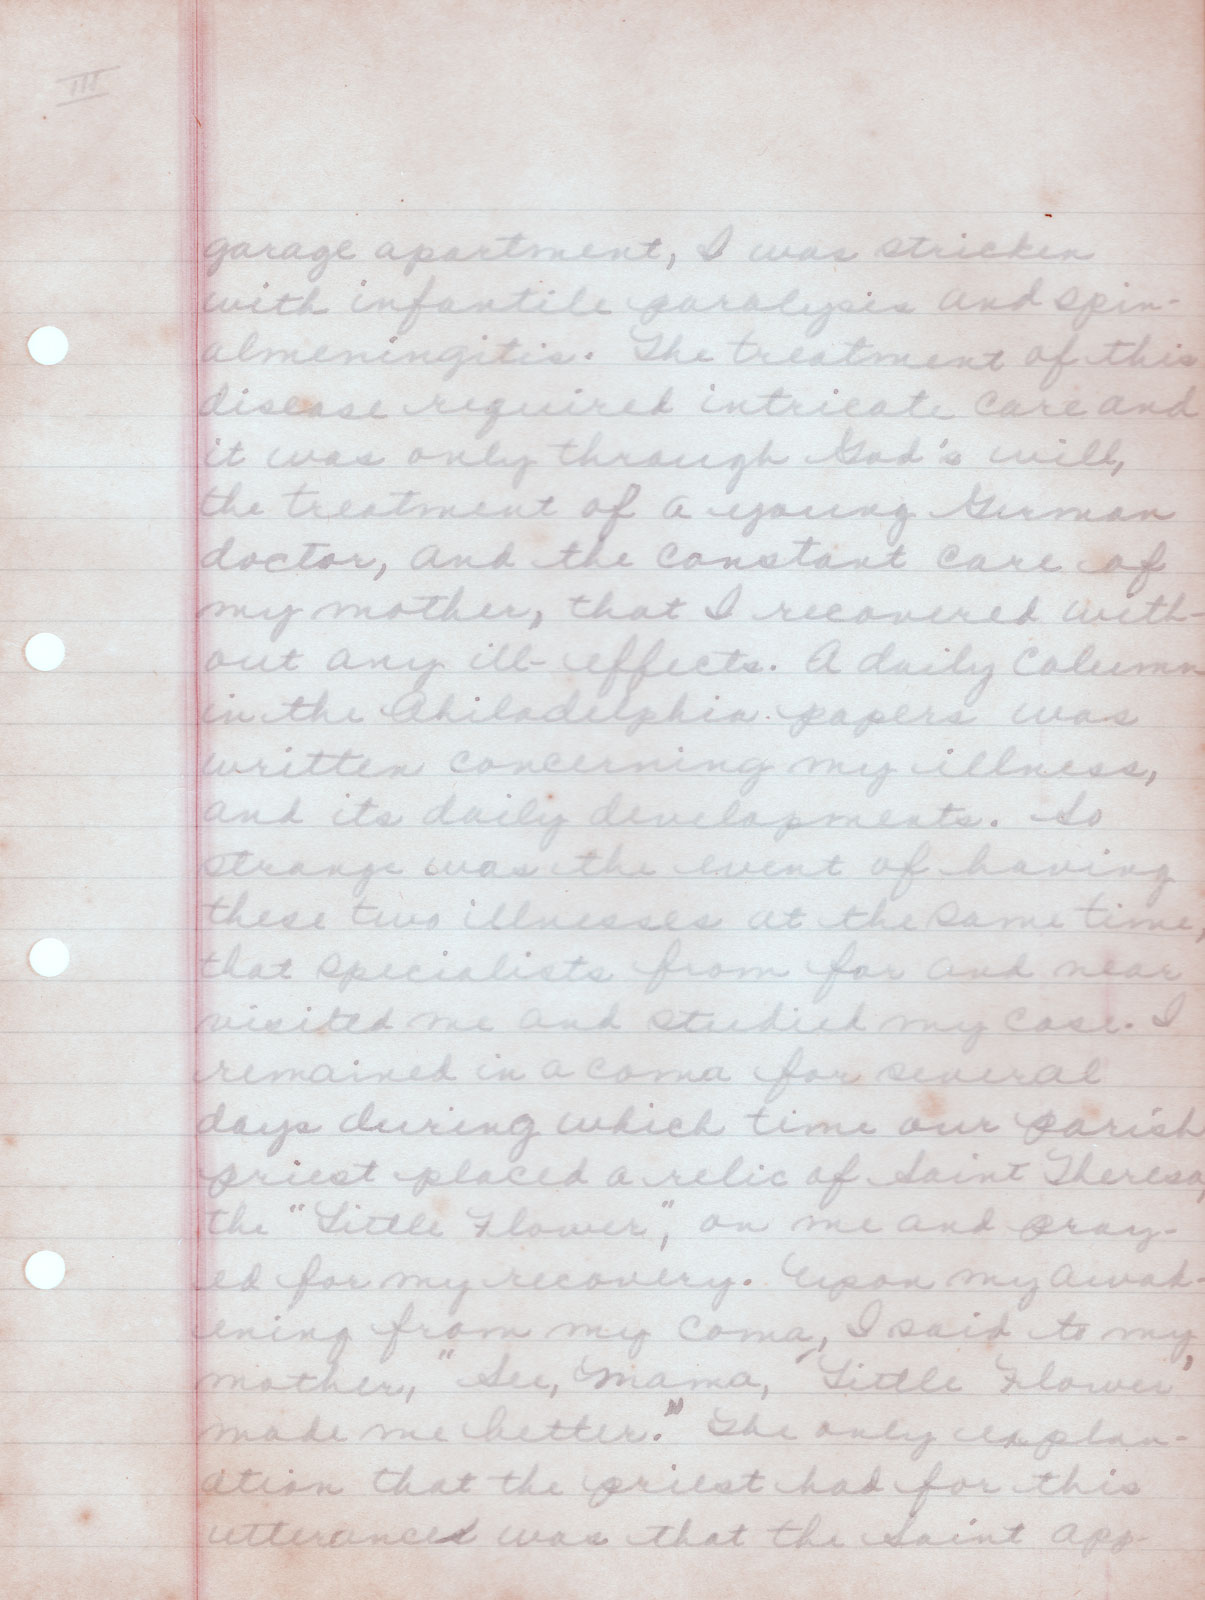 III
garage apartment, I was stricken
with infantile paralysis and spin-
almeningitis. The treatment of this
disease required intricate care and
it was only through God's will,
the treatment of a young German
doctor, and the constant care of
my mother, that I recovered with-
out any ill-effects. A daily column
in the Philadelphia papers was
written concerning my illness,
and its daily developments. So
strange was the event of having
these two illnesses at the same time,
that specialists from far and near
visited me and studied my case. I
remained in a coma for several
days during which time our parish
priest placed a relic of Saint Theresa,
the "Little Flower", on me and pray-
ed for my recovery. Upon my awak-
ening from my coma, I said to my
mother, "See, Mama, 'Little Flower'
made me better." The only explan-
ation that the priest had for this
utterance was that the Saint app-